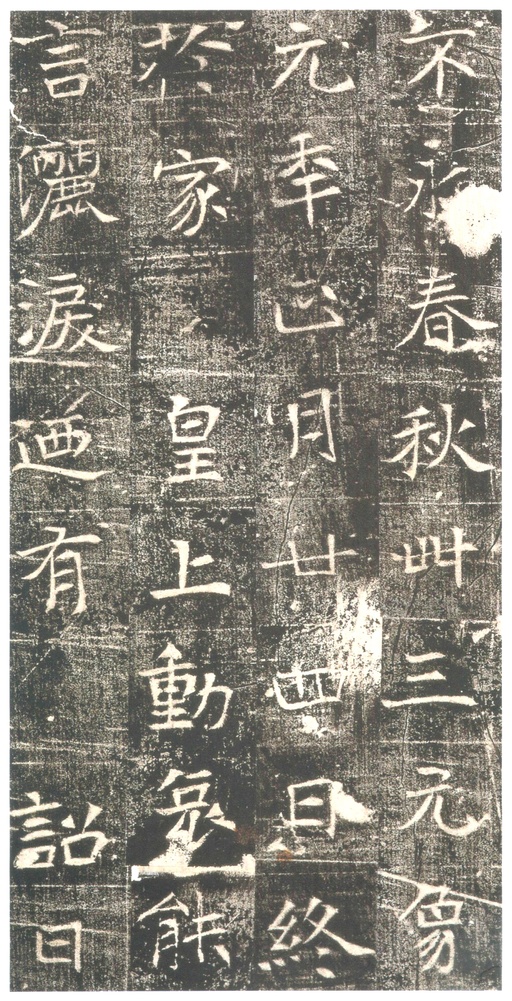 不永春秋卌三元象
元年正月廿四日終
於家　皇上動哀能
言灑淚迺有　詔曰